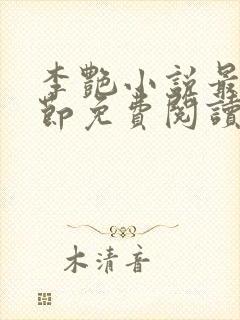 李艷小說最
節免費閱讀
木清音